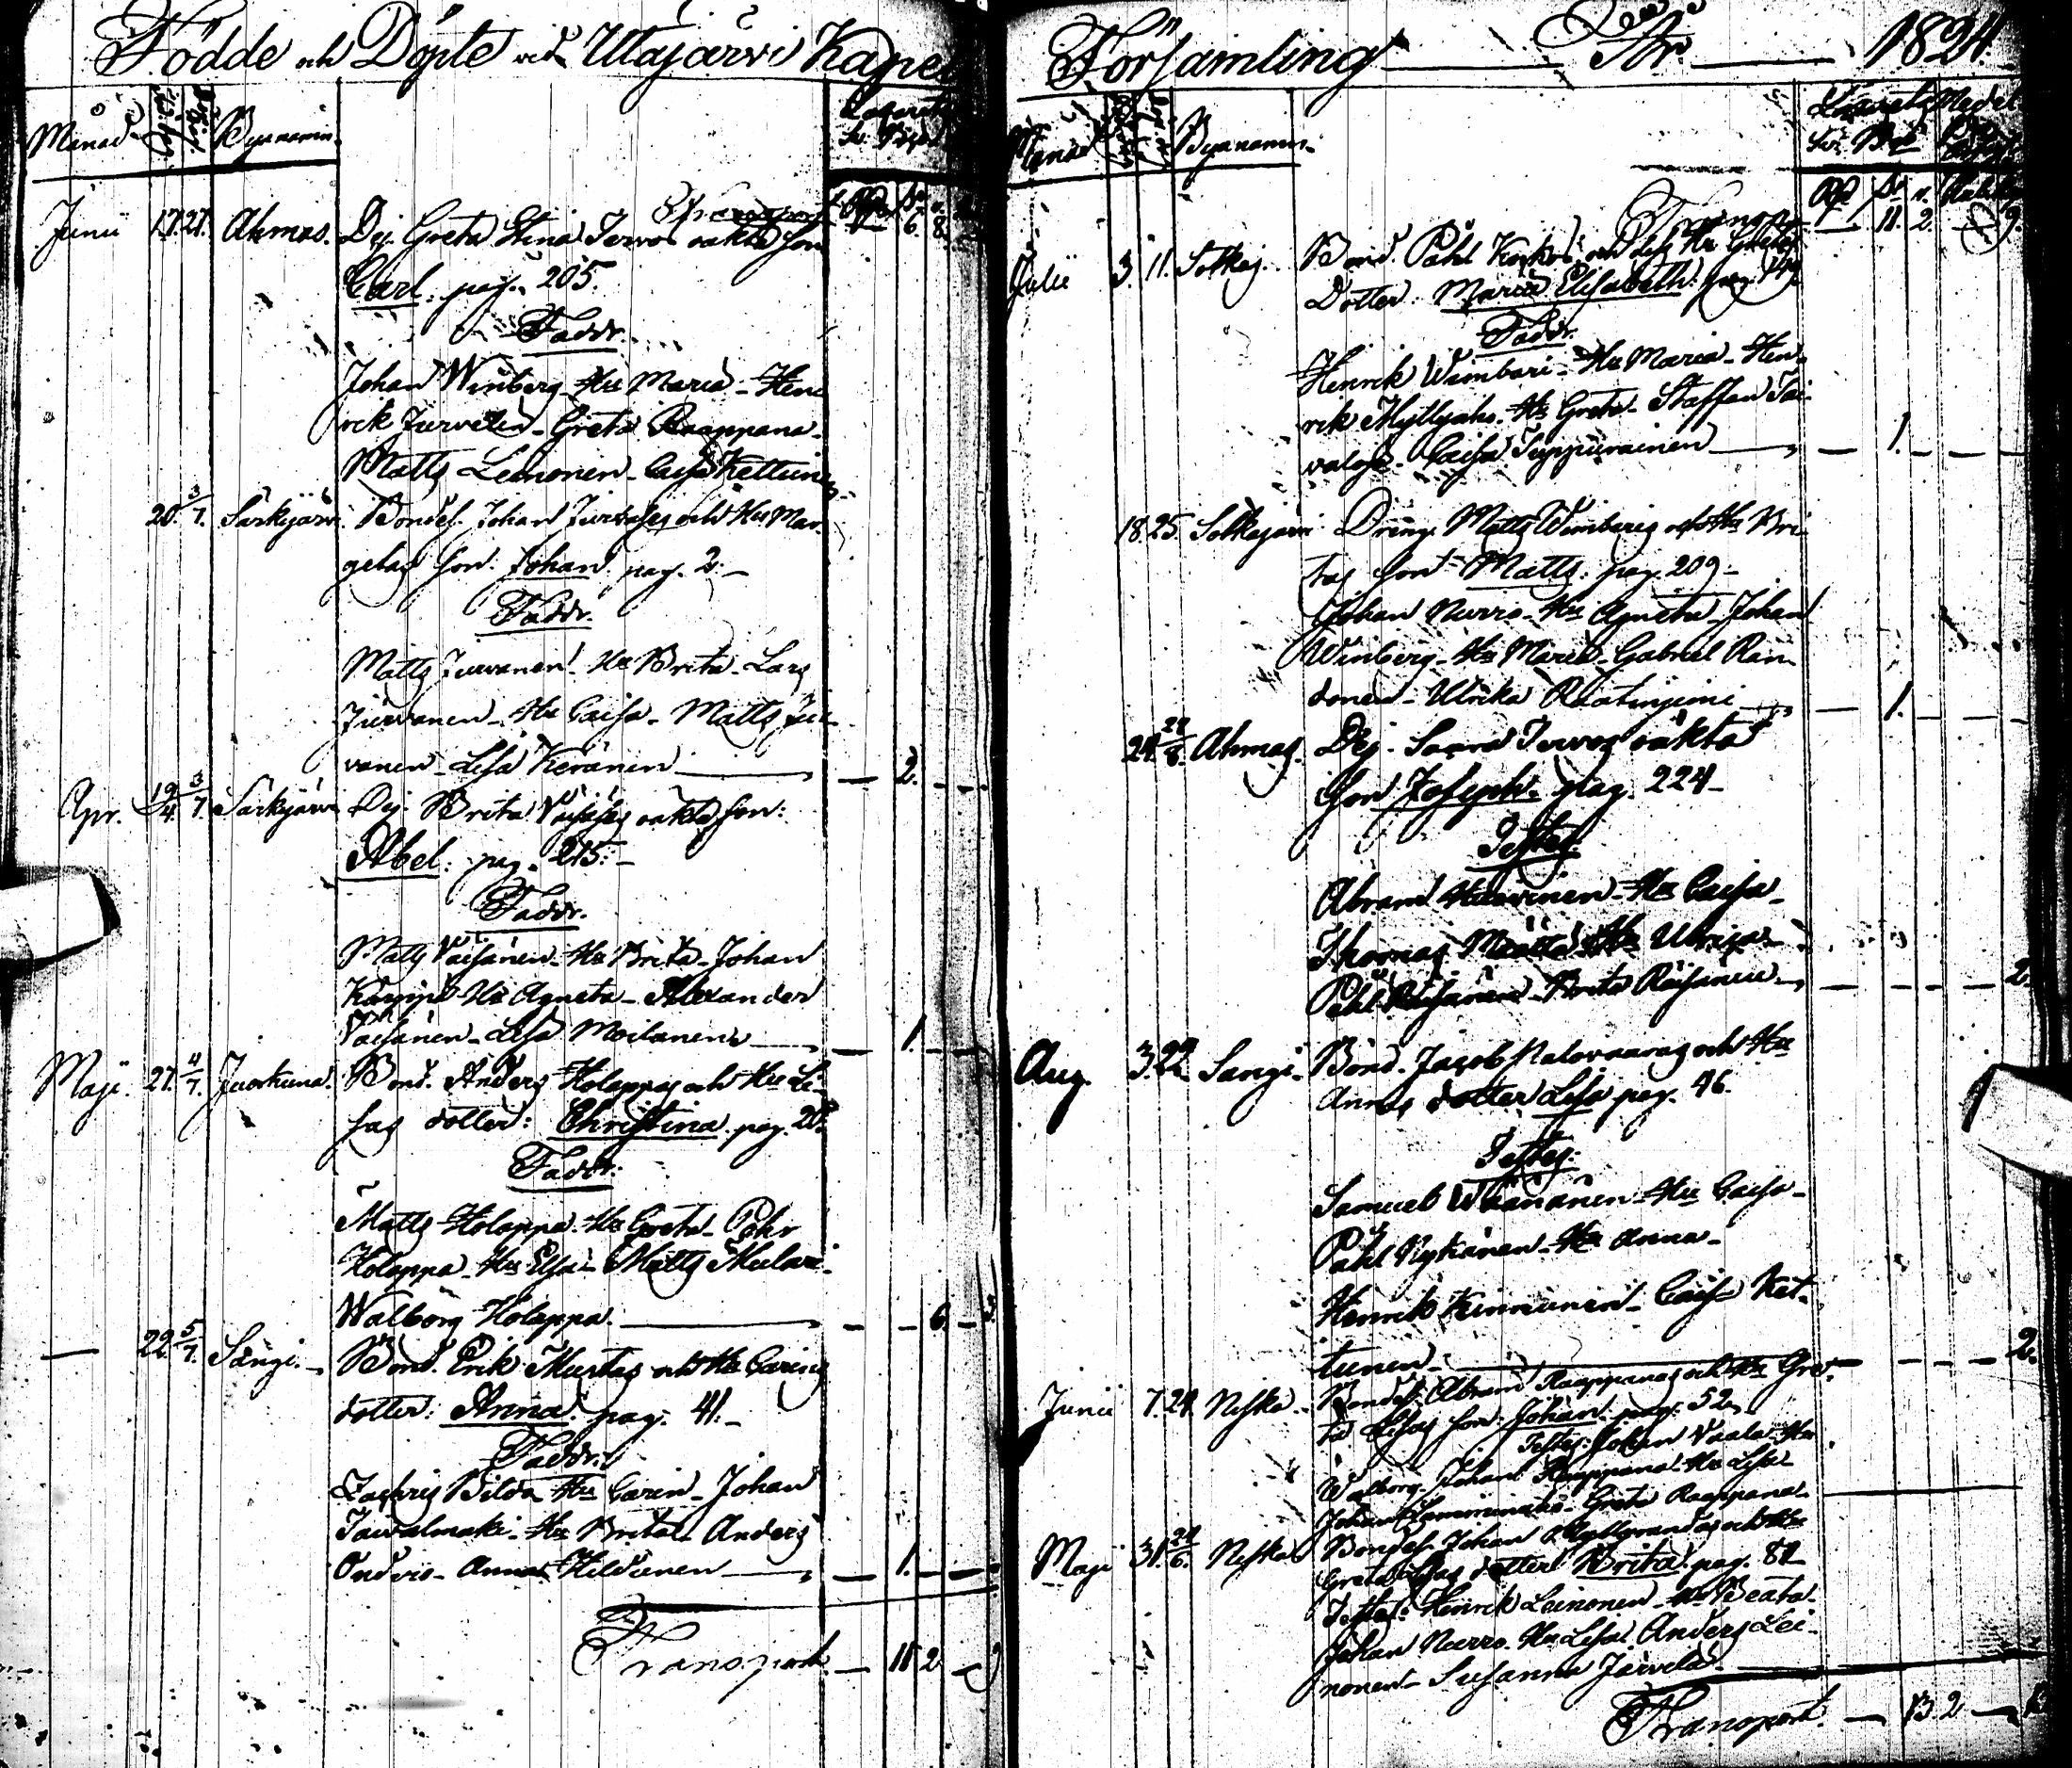 Födde och Döpte vid Utajärvi Kapell
Månad
Byanamn.
Transport 6. 8.
Junii 17. 27. Ahmas. Dej. Greta Stina Jurvos oäkta Son
Carl. pag. 205.
Faddr.
Johan Winberg Hu Maria - Hen-
rik Jurvelin - Greta Raappana -
Matts Leinonen - Caisa Kettunen
20. 3/7. Särkijärvi. Bondes. Johan Jurvas och Hu Mar-
getas Son. Johan. pag. 2. -
Faddr.
Matts Jurvanen. Hu Brita - Lars
Jurvanen - Hu Caisa - Matts Jur-
vanen - Lisa Keränen — 2.
Apr. 19/4. 3/7. Särkijärvi Dej. Brita Väisäs oäkta Son:
Abel. pag. 215. -
Faddr.
Matts Väisänen - Hu Brita - Johan
Karppi - Hu Agneta - Alexander
Väisänen - Lisa Moilanen — 1.
Maji. 27. 4/7. Juorkuna. Bond. Anders Holappas och Hu Li-
sas dotter: Christina. pag. 20.
Faddr.
Matts Holappa. Hu Greta - Pehr
Holappa - Hu Elsa - Matts Mulari -
Walborg Holappa. — 6. 3
— 22. 5/7. Sangi. - Bond. Erik Mustas och Hu Carins
dotter: Anna. pag. 41. -
Faddr.
Zachris Hu Carin - Johan
Hu Brita - Anders
Anna — 1.
Transport — 11. 2 - 9
Församling — År. — 1824.
Månad Byanamn.
Transport — 11. 2. — 9.
Julii 3. 11. Sotkaj. Bond. Påhl och des Hu Gretas
Dotter. Maria Elisabeth. pag.
Faddr.
Henrik Wimbari - Hu Maria - Hen-
rik Myllyaho. Hu Greta - Staffan Tai-
Caisa Tuppurainen — 1.
18. 25. Sotkajärvi Dreng. Matts Winbergs och Hu Bri-
tas Son Matts. pag. 209 -
Johan Nurro - Hu Agneta - Johan
Winberg - Hu Maria - Gabriel Ran-
tonen - Ulrika — 1.
24. 28/8. Ahmas. Dej. Saara Jurvos oäkta
Son Joseph. pag. 224 -
Testes.
Abram Hu Caisa -
Thomas Määttä Hu Ulrica -
Påhl Räisänen - Brita Räisänen — 2.
Aug. 3. 22. Sangi. Bond. Jacob Halovaaras och Hu
Annas dotter Lisa pag. 46.
Testes.
Samuel Hu Caisa -
Påhl Nykänen - Hu Anna -
Henrik Kinnunen - Caisa Ket-
tunen — 2.
Junii 7. 24. Niska. Bondes. Abram Raappanas och Hu Gre-
ta Lisas Son. Johan. pag. 52.
Testes. Johan Vaala. Hu
Walborg. Johan Raappana. Hu Lisa
Johan Lamminaho - Greta Raappana.
Maji 31. 24/6. Niska Bondes. Johan och Hu
Greta Lisas dotter Brita. pag. 81
Testes. Henrik Leinonen - Hu Beata -
Johan Nurro. Hu Lisa. Anders Lei-
nonen - Susanna Järvelä. —
Transport. — 13. 2 —